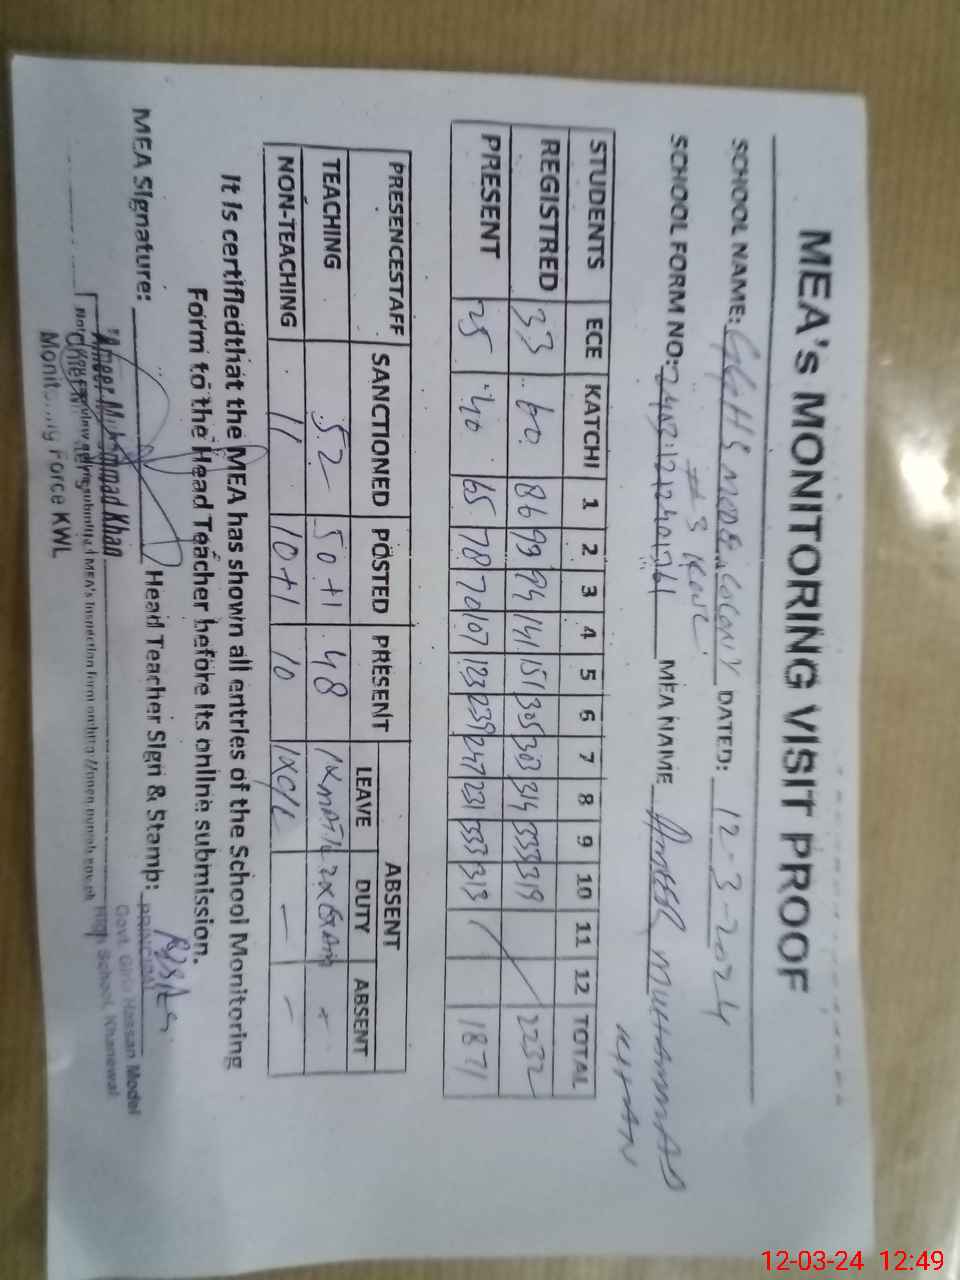 MEA's MONITORING VISIT PROOF
SCHOOL NAME: GGHS MODEL COLONY DATED: 12-3-2024
# 3 KWL
SCHOOL FORM NO: MEA NAME AMEER MUHAMMAD
KHAN
STUDENTS ECE KATCHI 1 2 3 4 5 6 7 8 9 10 11 12 TOTAL
REGISTRED 33 60 86 99 94 141 151 305 303 314 333 319 2232
PRESENT 25 40 65 78 70 107 123 239 247 231 333 313 1871
PRESENCESTAFF SANCTIONED POSTED PRESENT ABSENT
LEAVE DUTY ABSENT
TEACHING 52 50+1 48 1xMAT/L 2xExam -
NON-TEACHING 11 10+1 10 1xC/L - -
It Is certifiedthat the MEA has shown all entries of the School Monitoring
Form to the Head Teacher before its online submission.
MEA Signature: Head Teacher Sign & Stamp:
PRINCIPAL
Govt. Girls Hassan Model
High School, Khanewal
Ameer Muhammad Khan
submitted MEA's Inspection form
Monitoring Force KWL
12-03-24 12:49